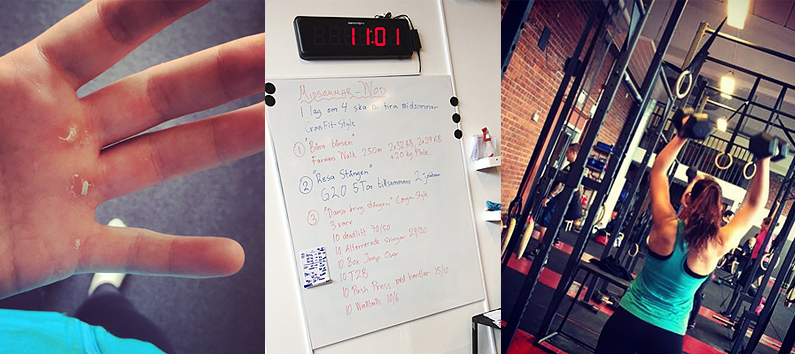 11:01
Midsommar-WOD
1 lag om 4 ska fira midsommar
CrossFit-Style
① "Bära
Farmers Walk 250m 2x32 KB, 2x24 KB
+20 kg Plate
② "Resa Stången"
G2O 5 Ton tillsammans 2 jobbar
③ "Dansa kring stången" Conga Style
3 varv
10 deadlift 70/50
10 Alternerade svingar 29/20
10 Box Jump Over
10 T2B
10 Push Press med hantlar 15/10
10 Wallballs 10/6